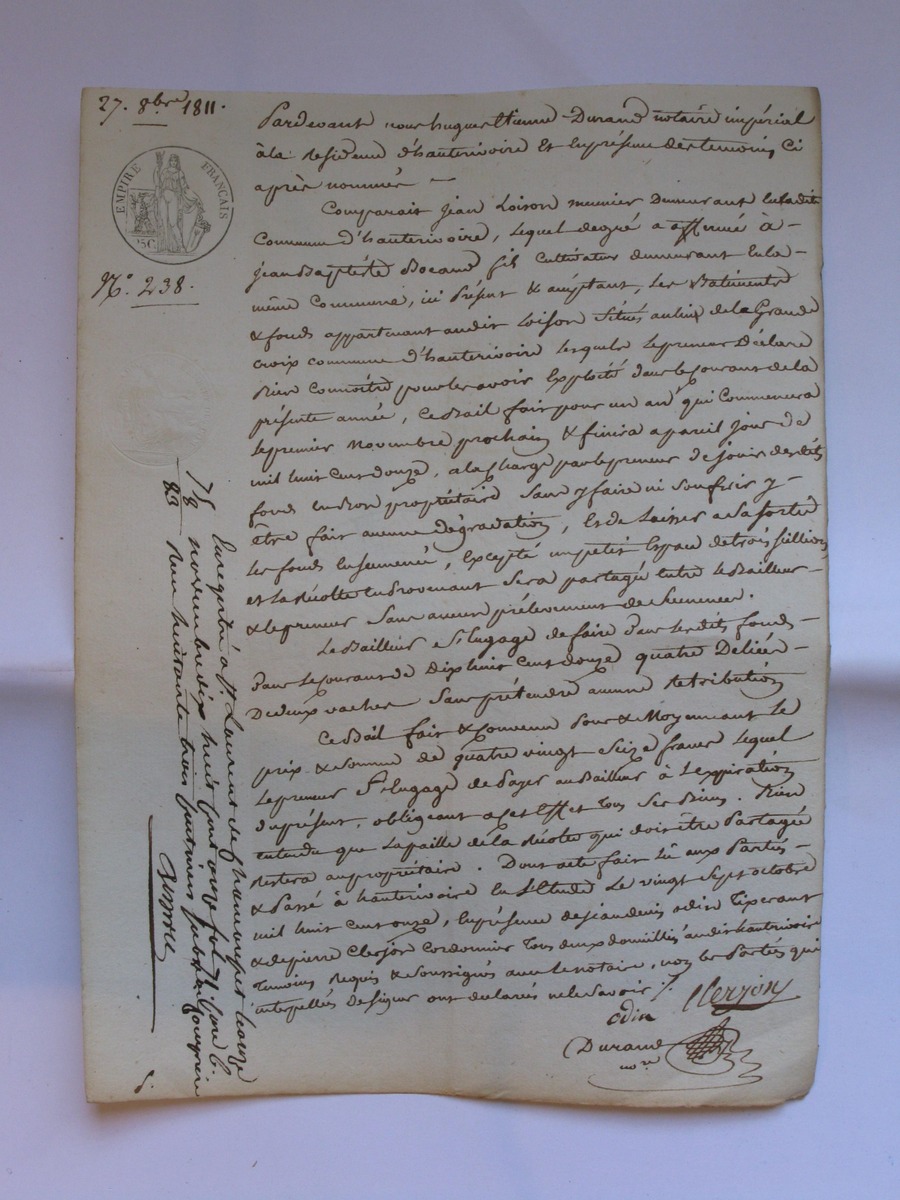 27. 8bre 1811.
EMPIRE FRANÇAIS
25C
No. 238.
Pardevant nous hugues Etienne Durand notaire impérial
à la Residence d'hauterivoire Et En présence des temoins Ci
après nommés —
Comparait Jean Loison meunier Demeurant En la dite
Commune d'hauterivoire, lequel de gré a affermé à -
Jean Baptiste Bocand fils Cultivateur demeurant En la -
même Commune, ici Présent & acceptant, Les Batiments
& fonds appartenant audit Loison Situés au lieu de la Grande
croix commune d'hauterivoire lesquels le preneur Déclare
Bien Connoitre pour les avoir Exploité dans le Courant de la
présente année, Ce Bail fait pour un an qui Commencera
le premier Novembre prochain & finira a pareil jour de
mil huit Cent douze, a la Charge par le preneur de jouir desdits
fonds En Bon propriétaire Sans y faire ni Souffrir y -
être fait aucune dégradation, Et de Laisser a Sa Sortie
les fonds Ensemencé, Excepté un petit Espace de trois Sillions
et La Récolte En Provenant Sera partagée Entre le Bailleur -
& le preneur Sans aucun prélevement de Semence.
Le Bailleur S'Engage de faire Dans Lesdits fonds -
Dans le Courant de Dix huit Cent douze quatre Deliées -
De deux vaches Sans prétendre aucune Retribution
Ce Bail fait & Convenu Pour & Moyennant Le
prix & Somme de quatre vingt Seize francs Lequel
Le preneur S'Engage de Payer au Bailleur à L'Expiration
du présent, obligeant a cet Effet tous Ses Biens. Bien
entendu que La paille de la Récolte qui doit être Partagée
Restera au propriétaire. Dont acte fait Lu aux Parties -
& Passé à hauterivoire En L'Etude Le vingt Sept octobre
mil huit Cent onze, En présence de Jean denis odin Tisserant
& de pierre Clerjon Cordonnier Tous deux domiciliés audit hauterivoire
Temoins Requis & Soussignés avec le notaire, non les Parties qui
interpellés de Signer ont declarés ne le Savoir /.
odin Clerjon
Durand
nore
Enregistré à St. Laurent de Chamousset le onze
novembre dix huit Cent onze fol. 71 Case 6.
Recu huitante trois Centimes Subvention Comprise